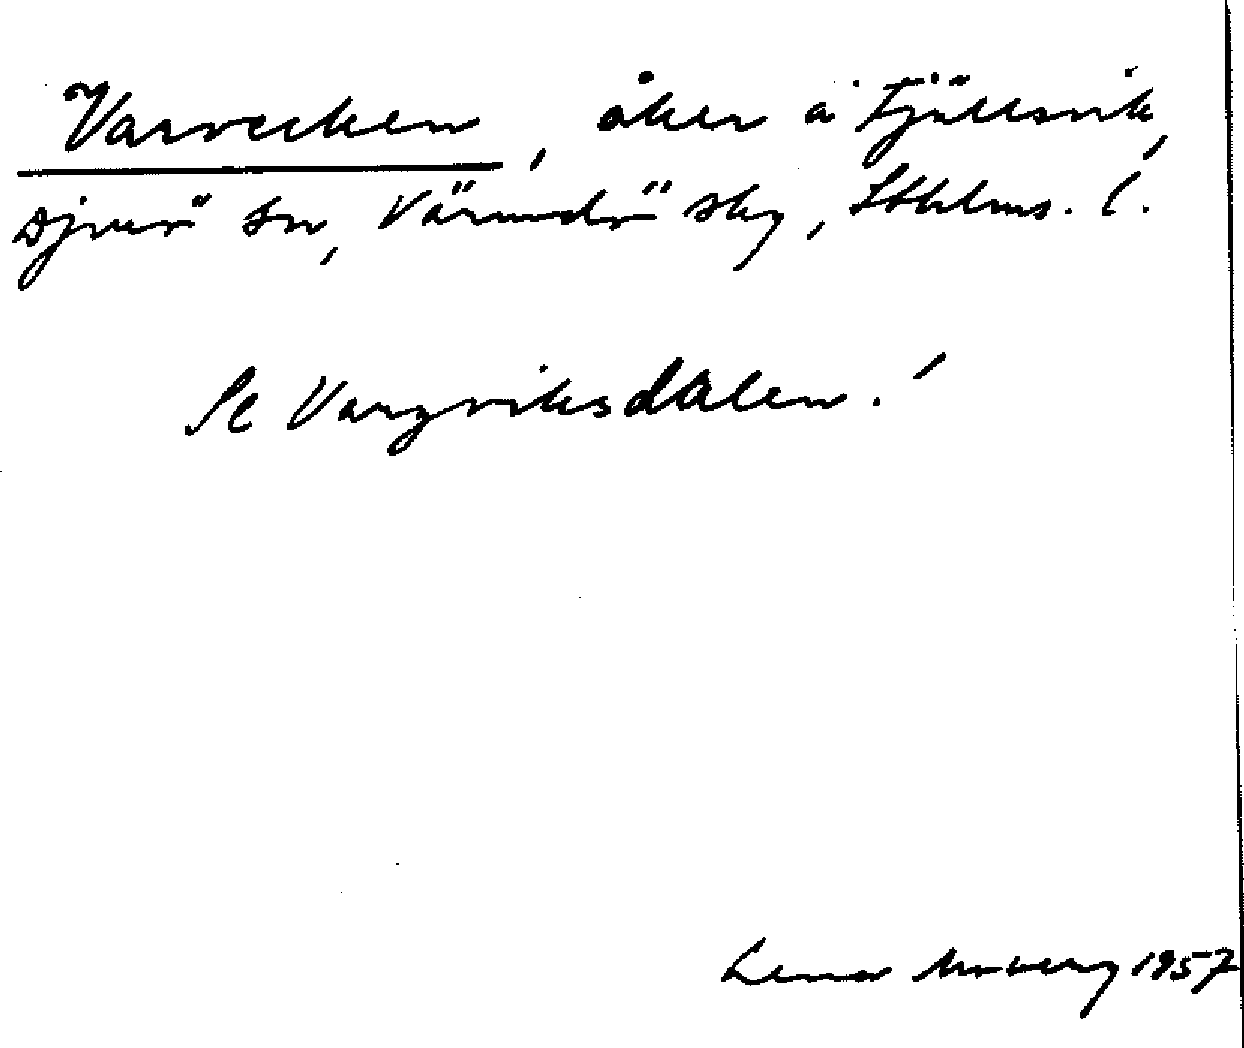 Varvecken, åker å Fjällsvik,
Djurö sn, Värmdö skg, Sthlms. l.
Se Vargviksdalen!
Lena Moberg 1957